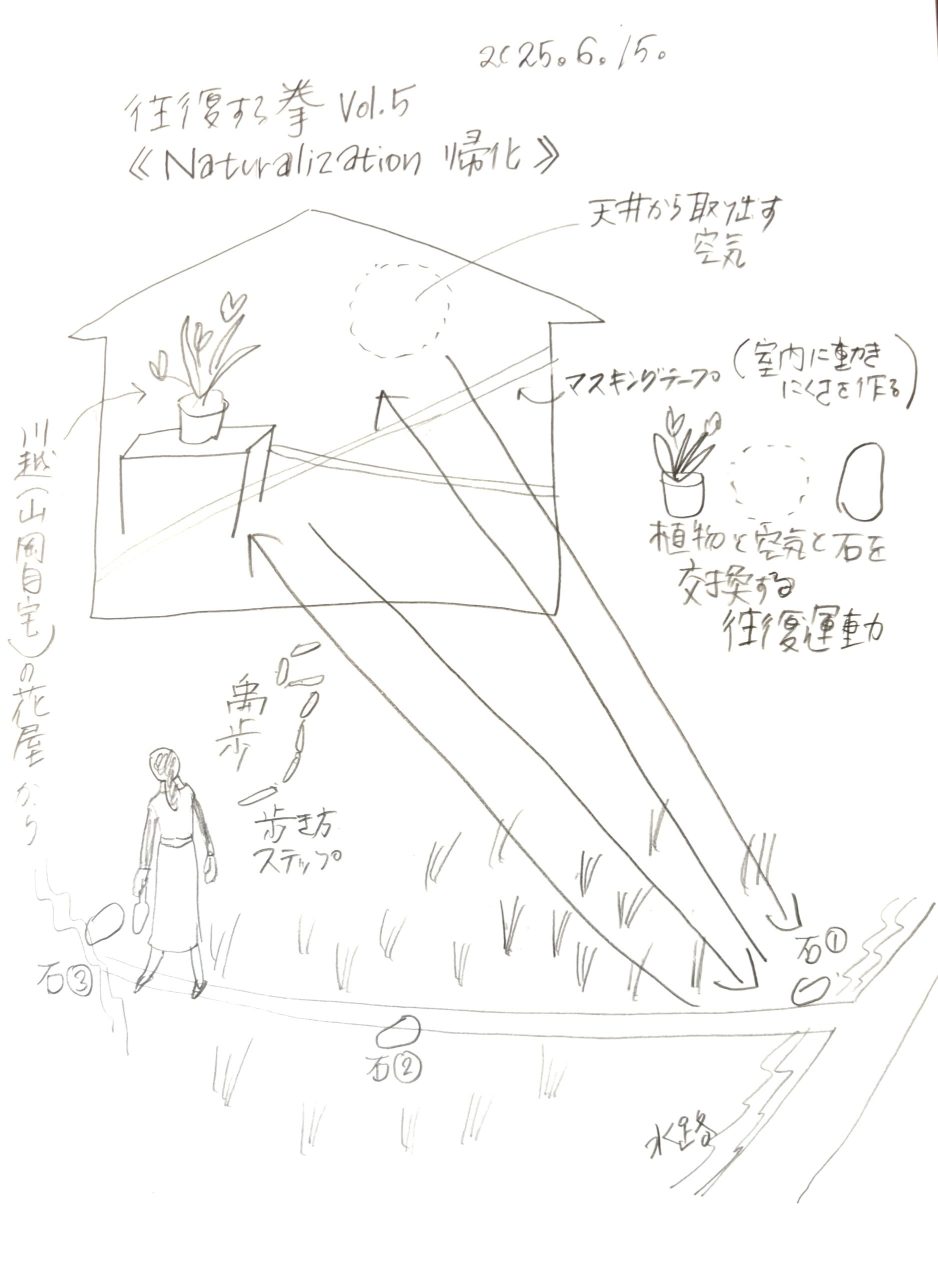 2025.6.15.
往復する拳 Vol.5
《Naturalization 帰化》
天井から取り出す
空気
マスキングテープ
(室内に動き
にくさを作る)
植物と空気と石を
交換する
往復運動
川越(山岡自宅)の花屋から
禹歩
歩き方
ステップ
石①
石③
石②
水路